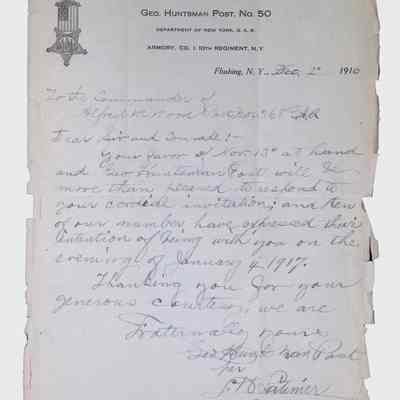 GEO. HUNTSMAN POST, NO. 50
DEPARTMENT OF NEW YORK, G. A. R.
ARMORY, CO. I 10TH REGIMENT, N.Y.
Flushing, N. Y. Dec. 2 1916
To the Commander of
Alfred M. Wood Post
Dear Sir and Comrade:-
Your favor of Nov. 13th at hand
and Geo Huntsman Post will be
more than pleased to respond to
your cordial invitation; and ten
of our number have expressed their
intention of being with you on the
evening of January 4, 1917.
Thanking you for your
generous courtesy, we are
Fraternally yours
Geo Huntsman Post
per